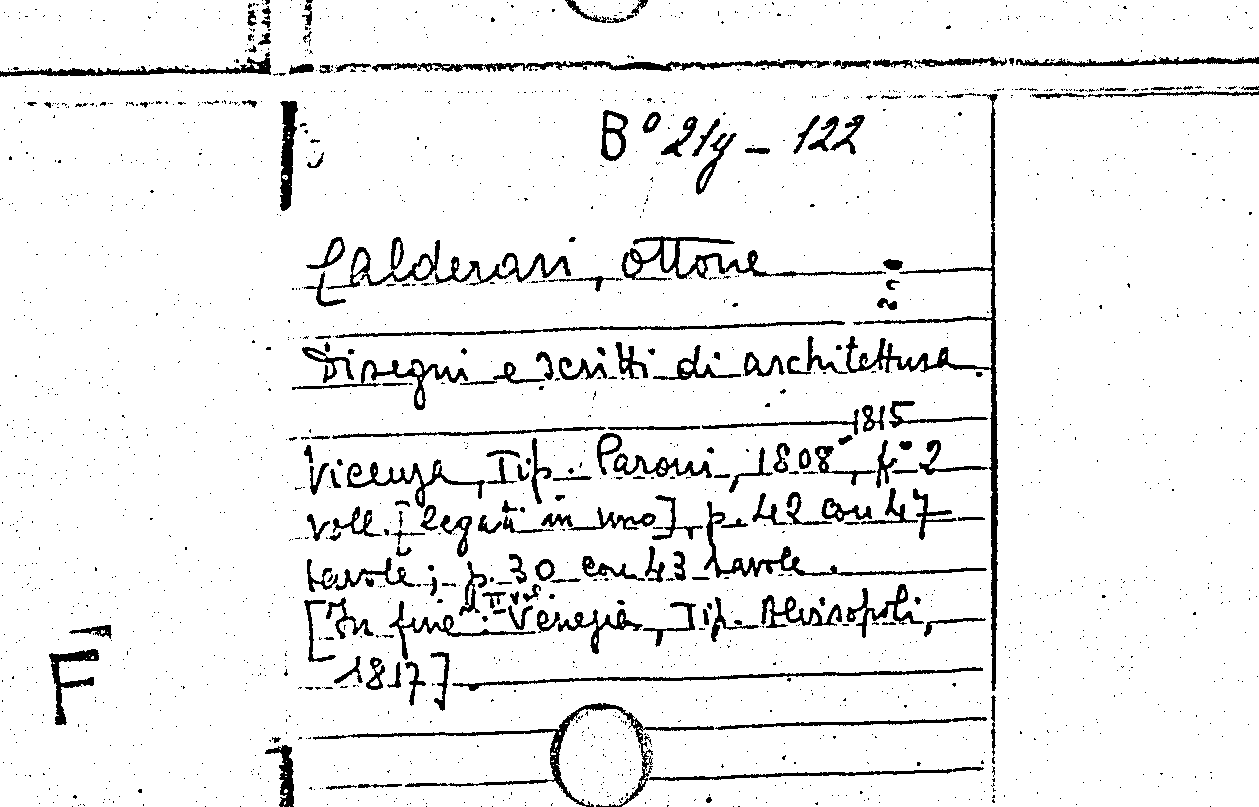 B° 21y - 122
Calderari, Ottone
Disegni e scritti di architettura.
Vicenza, Tip. Paroni, 1808-1815, f° 2
voll. [legati in uno], p. 42 con 47
tavole; p. 30 con 43 tavole.
[In fine al II vol.: Venezia, Tip. Alvisopoli,
1817].
F